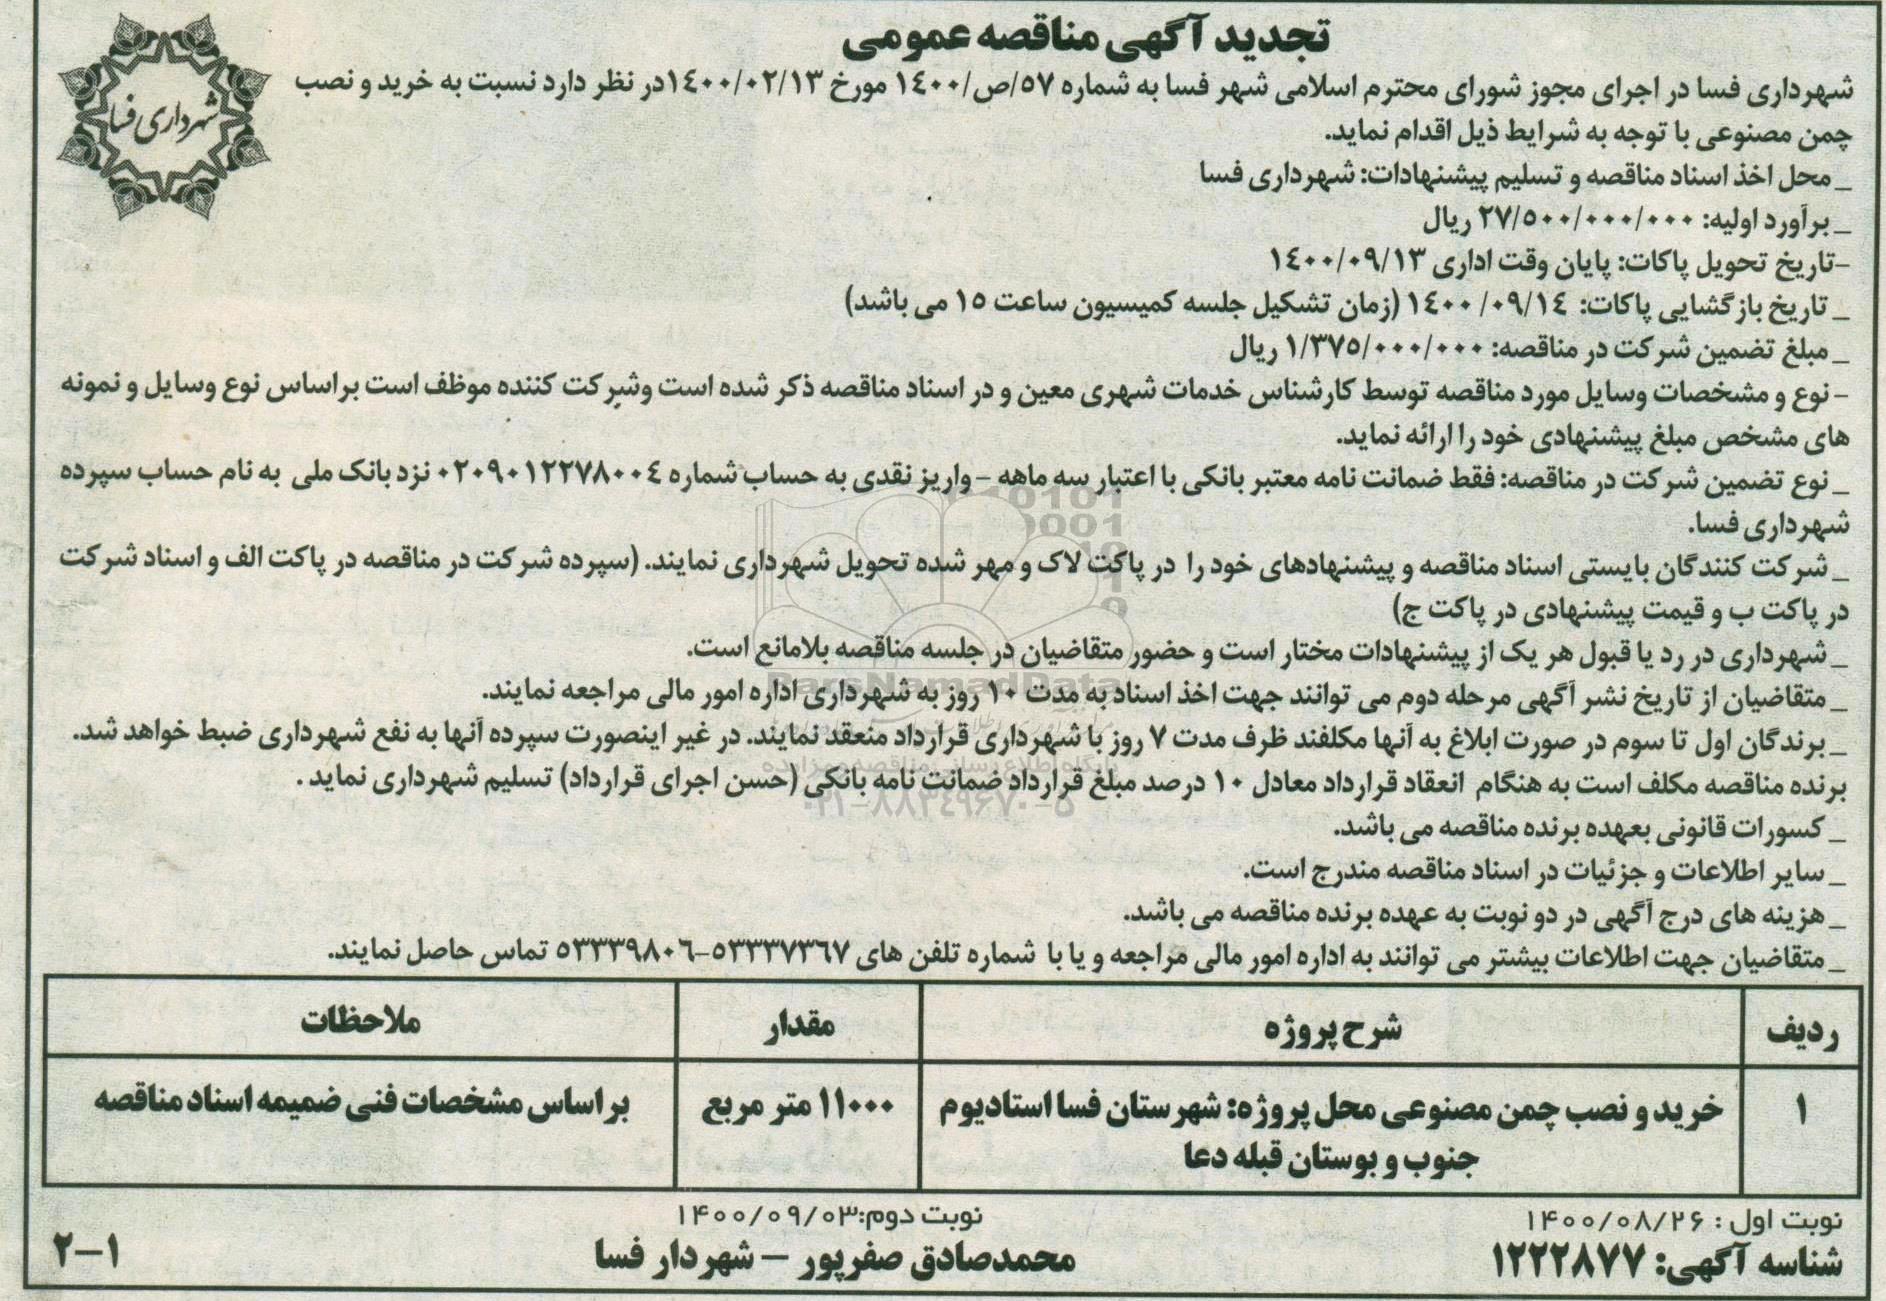 تجدید آگهی مناقصه عمومی
شهرداری فسا
شهرداری فسا در اجرای مجوز شورای محترم اسلامی شهر فسا به شماره ۵۷/ص/۱۴۰۰ مورخ ۱۴۰۰/۰۲/۱۳در نظر دارد نسبت به خرید و نصب
چمن مصنوعی با توجه به شرایط ذیل اقدام نماید.
_ محل اخذ اسناد مناقصه و تسلیم پیشنهادات: شهرداری فسا
_ برآورد اولیه: ۲۷/۵۰۰/۰۰۰/۰۰۰ ریال
-تاریخ تحویل پاکات: پایان وقت اداری ۱۴۰۰/۰۹/۱۳
_ تاریخ بازگشایی پاکات: ۱۴۰۰/۰۹/۱۴ (زمان تشکیل جلسه کمیسیون ساعت ۱۵ می باشد)
_ مبلغ تضمین شرکت در مناقصه: ۱/۳۷۵/۰۰۰/۰۰۰ ریال
- نوع و مشخصات وسایل مورد مناقصه توسط کارشناس خدمات شهری معین و در اسناد مناقصه ذکر شده است وشرکت کننده موظف است براساس نوع وسایل و نمونه
های مشخص مبلغ پیشنهادی خود را ارائه نماید.
_ نوع تضمین شرکت در مناقصه: فقط ضمانت نامه معتبر بانکی با اعتبار سه ماهه - واریز نقدی به حساب شماره ۰۲۰۹۰۱۲۲۷۸۰۰۴ نزد بانک ملی به نام حساب سپرده
شهرداری فسا.
_ شرکت کنندگان بایستی اسناد مناقصه و پیشنهادهای خود را در پاکت لاک و مهر شده تحویل شهرداری نمایند. (سپرده شرکت در مناقصه در پاکت الف و اسناد شرکت
در پاکت ب و قیمت پیشنهادی در پاکت ج)
_ شهرداری در رد یا قبول هر یک از پیشنهادات مختار است و حضور متقاضیان در جلسه مناقصه بلامانع است.
_ متقاضیان از تاریخ نشر آگهی مرحله دوم می توانند جهت اخذ اسناد به مدت ۱۰ روز به شهرداری اداره امور مالی مراجعه نمایند.
_ برندگان اول تا سوم در صورت ابلاغ به آنها مکلفند ظرف مدت ۷ روز با شهرداری قرارداد منعقد نمایند. در غیر اینصورت سپرده آنها به نفع شهرداری ضبط خواهد شد.
برنده مناقصه مکلف است به هنگام انعقاد قرارداد معادل ۱۰ درصد مبلغ قرارداد ضمانت نامه بانکی (حسن اجرای قرارداد) تسلیم شهرداری نماید .
_ کسورات قانونی بعهده برنده مناقصه می باشد.
_ سایر اطلاعات و جزئیات در اسناد مناقصه مندرج است.
_ هزینه های درج آگهی در دو نوبت به عهده برنده مناقصه می باشد.
_ متقاضیان جهت اطلاعات بیشتر می توانند به اداره امور مالی مراجعه و یا با شماره تلفن های ۵۳۳۳۷۳۶۷-۵۳۳۳۹۸۰۶ تماس حاصل نمایند.
ردیف شرح پروژه مقدار ملاحظات
۱ خرید و نصب چمن مصنوعی محل پروژه: شهرستان فسا استادیوم ۱۱۰۰۰ متر مربع براساس مشخصات فنی ضمیمه اسناد مناقصه
جنوب و بوستان قبله دعا
نوبت اول : ۱۴۰۰/۰۸/۲۶ نوبت دوم:۱۴۰۰/۰۹/۰۳
شناسه آگهی: ۱۲۲۲۸۷۷ محمدصادق صفرپور – شهردار فسا ۲-۱
ParsNamadData
پایگاه اطلاع رسانی مناقصه و مزایده
۰۲۱-۸۸۳۴۹۶۷۰-۵